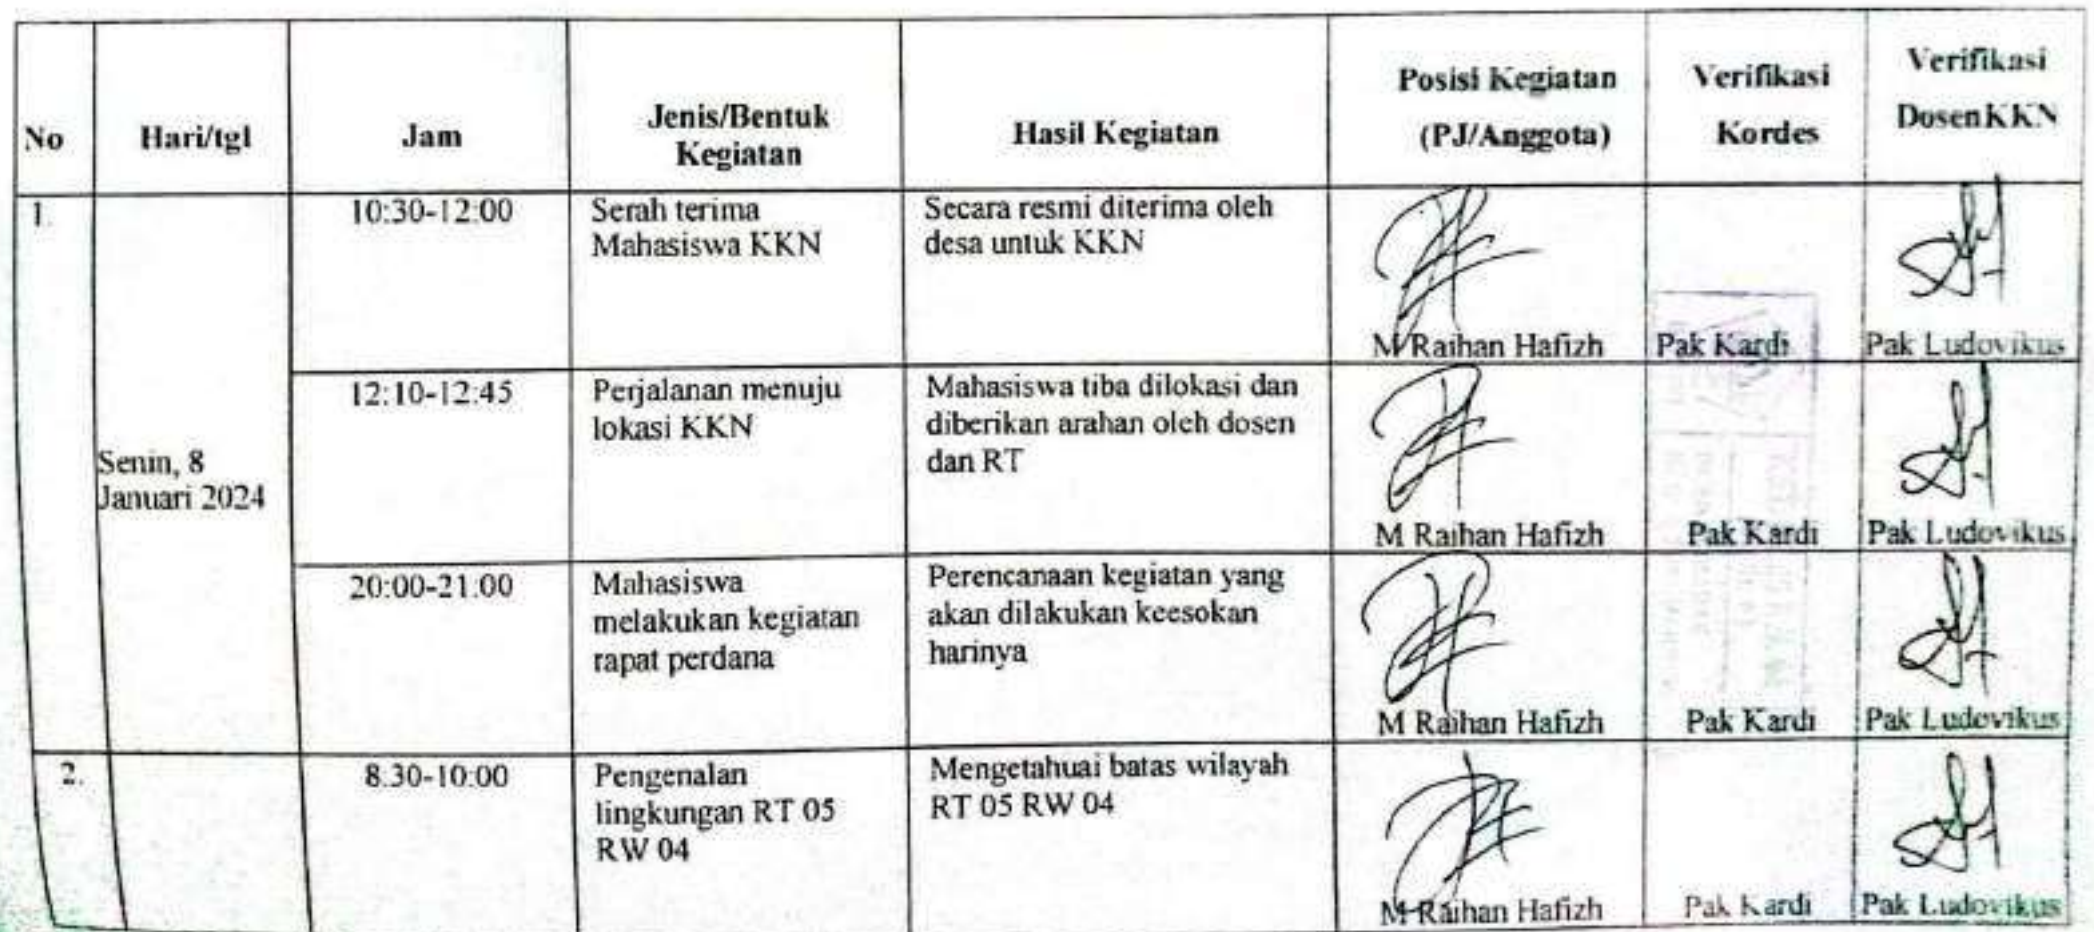 No
Hari/tgl
Jam
Jenis/Bentuk
Kegiatan
Hasil Kegiatan
Posisi Kegiatan
(PJ/Anggota)
Verifikasi
Kordes
Verifikasi
DosenKKN
1.
Senin, 8
Januari 2024
10:30-12:00
Serah terima
Mahasiswa KKN
Secara resmi diterima oleh
desa untuk KKN
M Raihan Hafizh
Pak Kardi
Pak Ludovikus
12:10-12:45
Perjalanan menuju
lokasi KKN
Mahasiswa tiba dilokasi dan
diberikan arahan oleh dosen
dan RT
M Raihan Hafizh
Pak Kardi
Pak Ludovikus
20:00-21:00
Mahasiswa
melakukan kegiatan
rapat perdana
Perencanaan kegiatan yang
akan dilakukan keesokan
harinya
M Raihan Hafizh
Pak Kardi
Pak Ludovikus
2.
8.30-10:00
Pengenalan
lingkungan RT 05
RW 04
Mengetahuai batas wilayah
RT 05 RW 04
M Raihan Hafizh
Pak Kardi
Pak Ludovikus